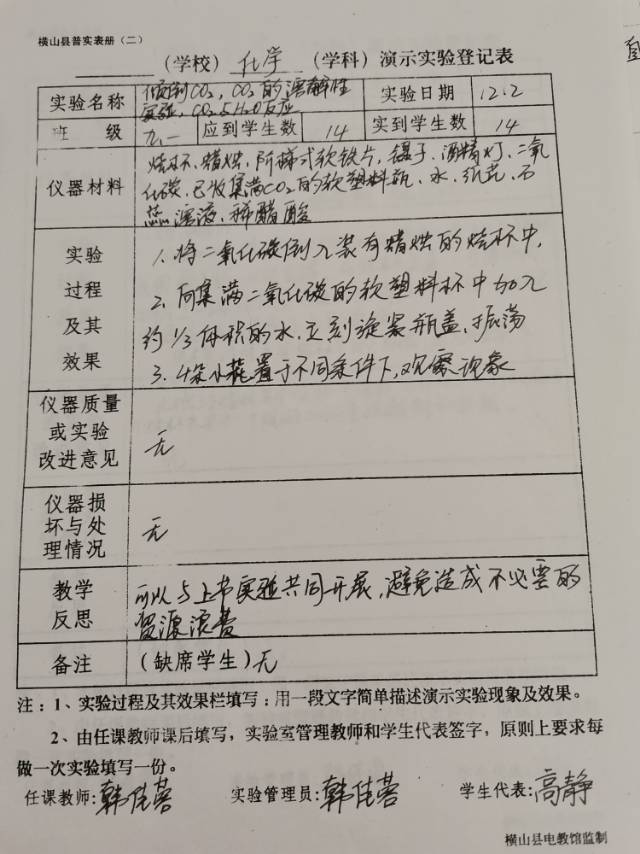 横山县普实表册（二）
（学校） 化学 （学科）演示实验登记表
实验名称 倾倒CO₂，CO₂的溶解性 实验日期 12.2
实验，CO₂与H₂O反应
班 级 九.一 应到学生数 14 实到学生数 14
烧杯、蜡烛、阶梯式软铁片、镊子、酒精灯、二氧
仪器材料 化碳、已收集满CO₂的软塑料瓶、水、纸花、石
蕊溶液、稀醋酸
实验 1. 将二氧化碳倒入装有蜡烛的烧杯中，
过程 2. 向集满二氧化碳的软塑料杯中加入
及其 约1/3体积的水，立刻旋紧瓶盖、振荡
效果 3. 4朵小花置于不同条件下，观察现象
仪器质量
或实验 无
改进意见
仪器损
坏与处 无
理情况
教学 可以与上节实验共同开展，避免造成不必要的
反思 资源浪费
备注 （缺席学生）无
注：1、实验过程及其效果栏填写：用一段文字简单描述演示实验现象及效果。
2、由任课教师课后填写，实验室管理教师和学生代表签字，原则上要求每
做一次实验填写一份。
任课教师：韩佳蓉 实验管理员：韩佳蓉 学生代表：高静
横山县电教馆监制